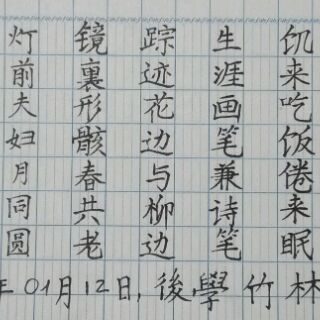 饥来吃饭倦来眠
生涯画笔兼诗笔
踪迹花边与柳边
镜裏形骸春共老
灯前夫妇月同圆
年01月12日,後學竹林